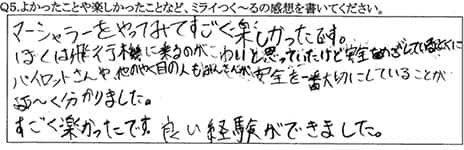 Q5.よかったことや楽しかったことなど、ミライつく~るの感想を書いてください。
マーシャラーをやってみてすごく楽しかったです。
ぼくは飛行機に乗るのがこわいと思っていたけど安全をめざしているとくに
パイロットさんや他のやく目の人もみんなが安全を一番大切にしていることが
よ~く分かりました。
すごく楽かったです。良い経験ができました。